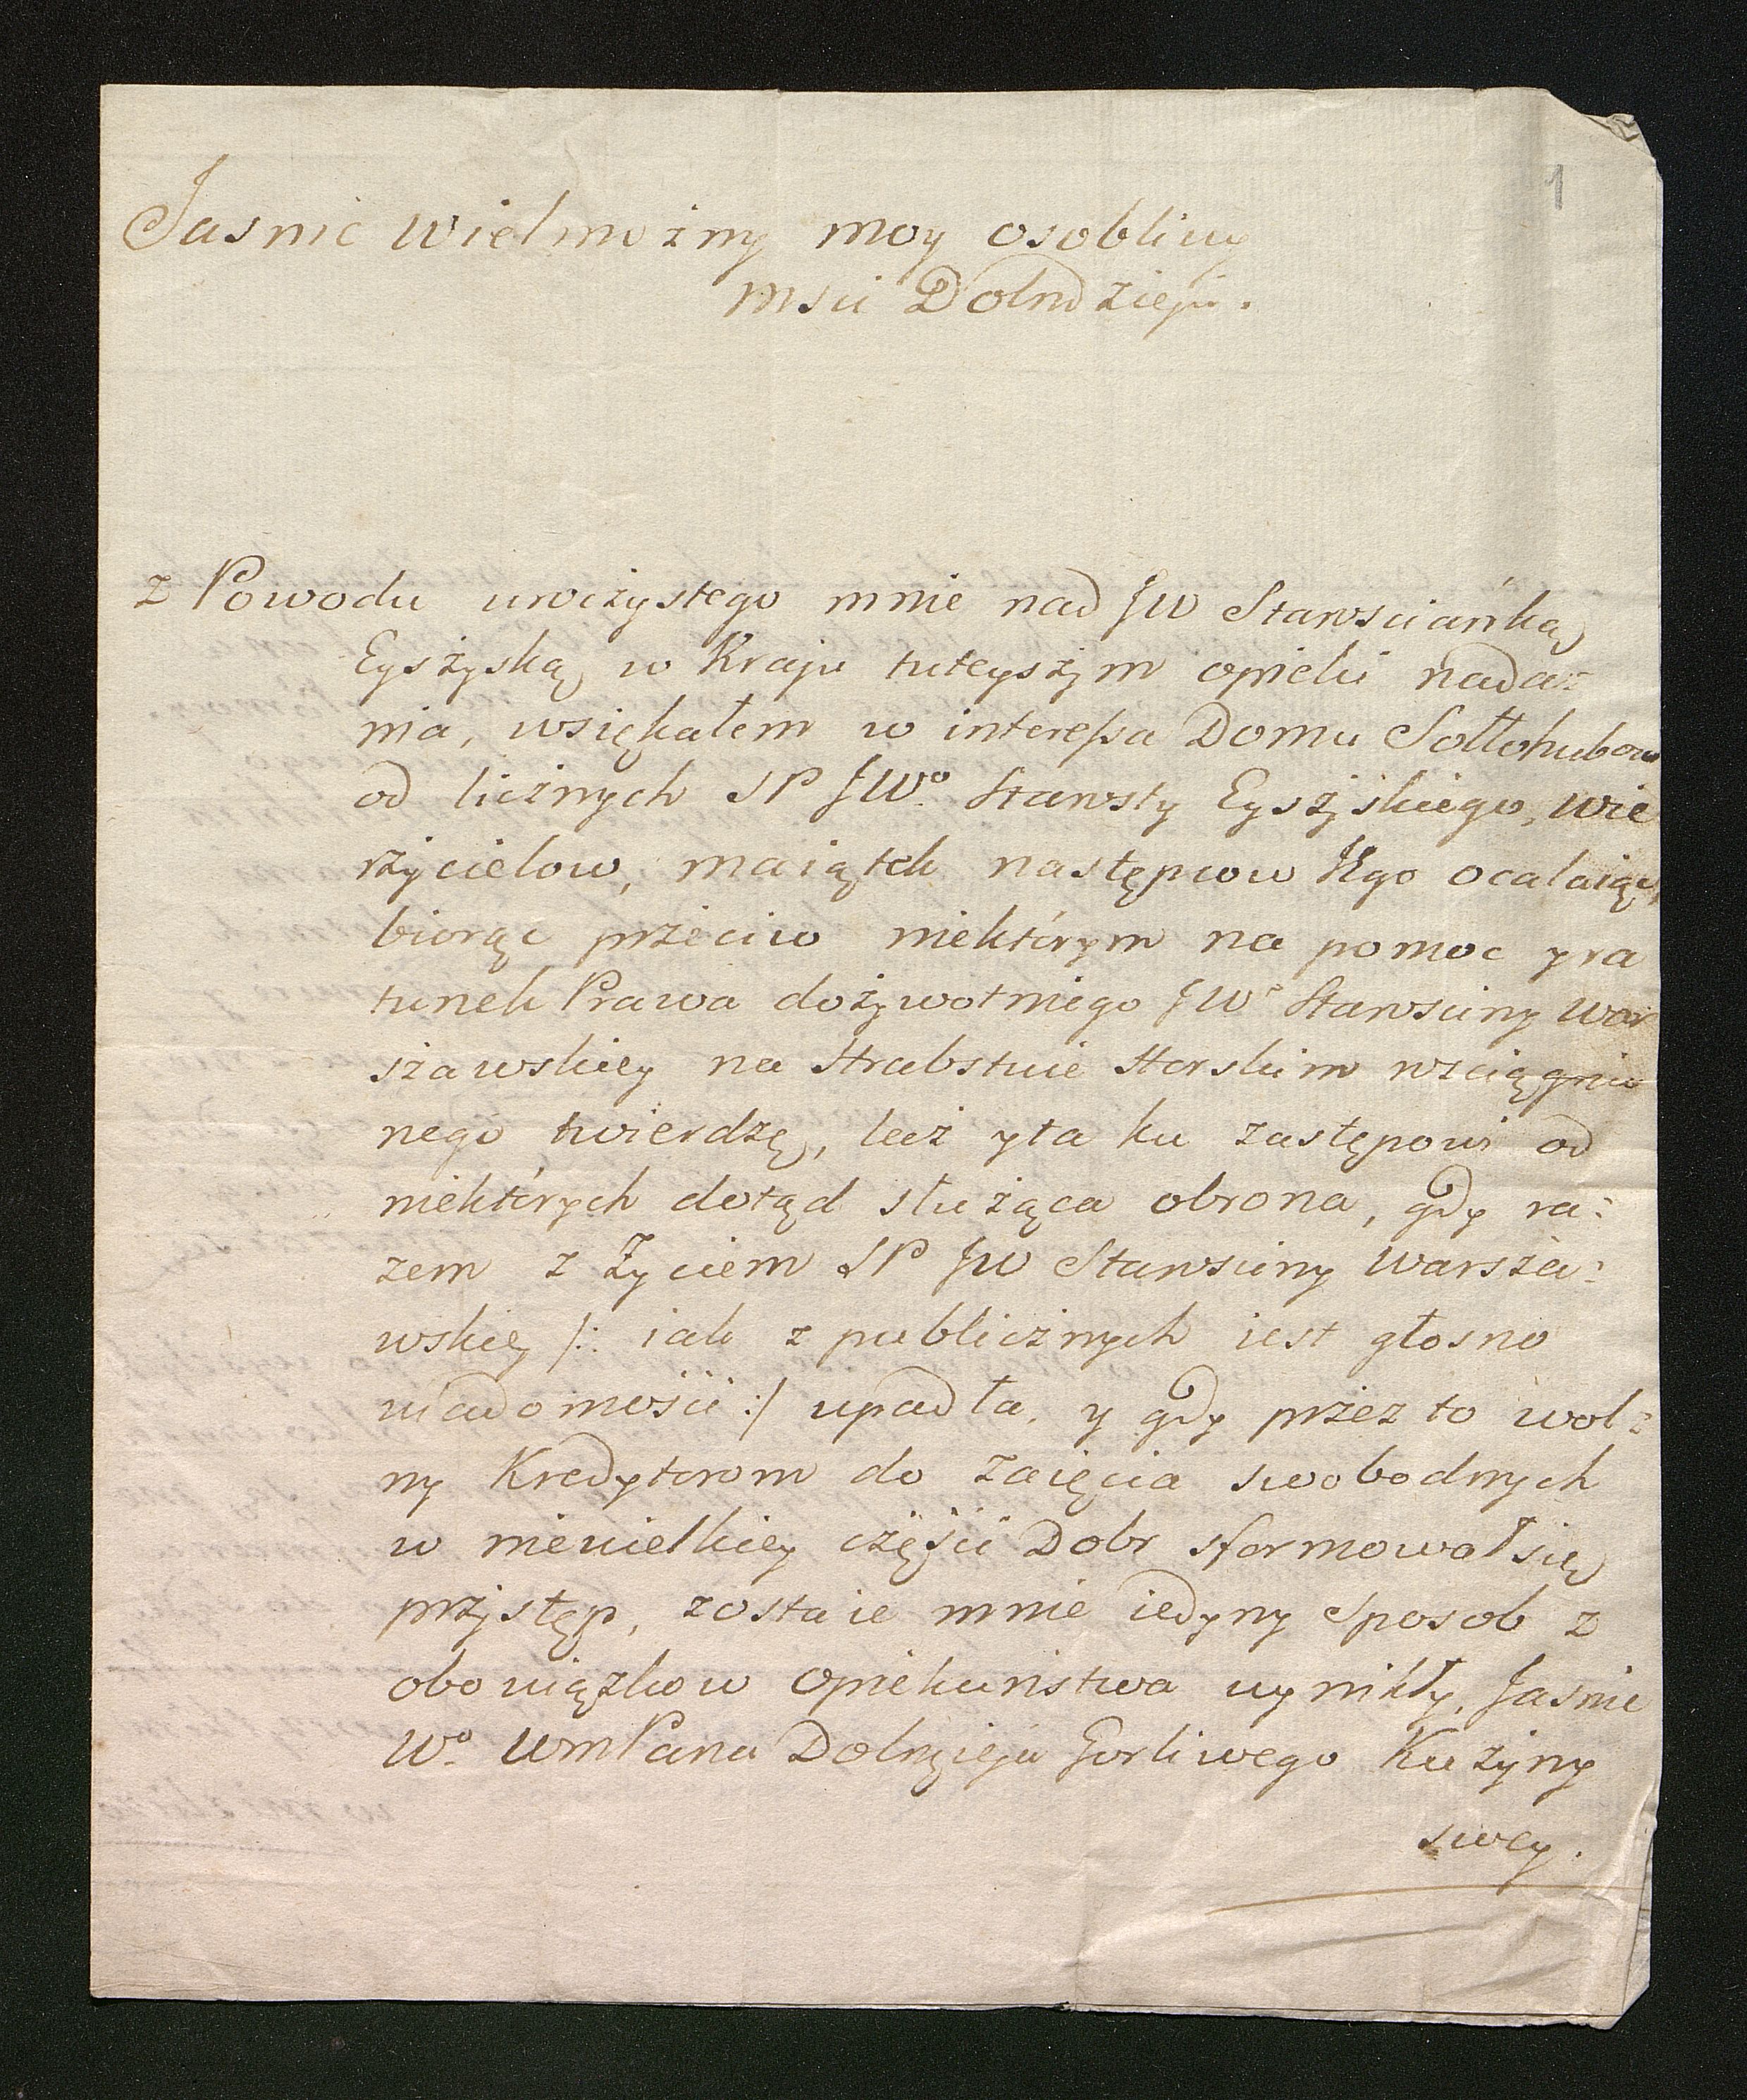 1
Jasnie Wielmożny moy osobliwy
Msci Dolmdzieju.
Z Powodu uroczystego mnie nad JW Starościanką
Eyszyską w Kraju tuteyszym opieki nada=
nia, wsiękałem w interessa Domu Sołłohubow
od licznych SP JWo. Starosty Eyszyskiego, wie
rzycielow, maiątek następcow Jego ocalaiąc,
biorąc przeciw niektórym na pomoc y ra
tunek Prawa dożywotniego JWey Starosciny War
szawskiey na Hrabstwie Horskim rozciągnio
nego twierdzę, lecz y ta ku zastępowi od
niektórych dotąd służąca obrona, gdy ra=
zem z Życiem SP JW Starosciny Warsza=
wskiey /: iak z publicznych iest głosno
wiadomości :/ upadła, y gdy przez to wol=
ny Kredytorom do zaięcia swobodnych
w niewielkiey części Dobr sformował się
przystęp, zostaie mnie iedyny sposob z
obowiązkow Opiekuństwa wynikły, Jasnie
Wo. WmPana Dolnzieja Gorliwego Kuzyny
swey.